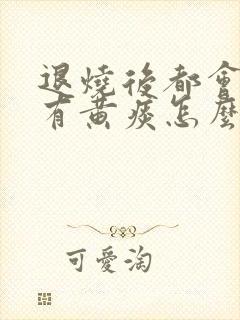 退燒後都會
有黃痰怎麼
可愛淘